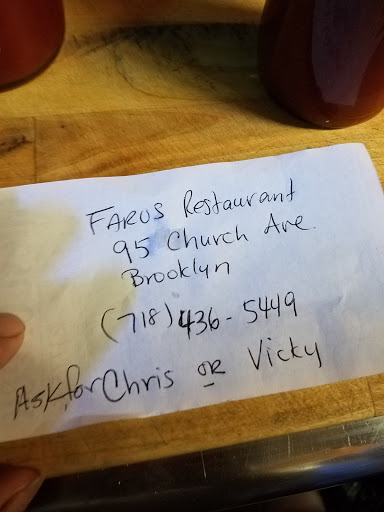 FAROS Restaurant
95 Church Ave.
Brooklyn
(718) 436-5449
Ask for Chris OR Vicky